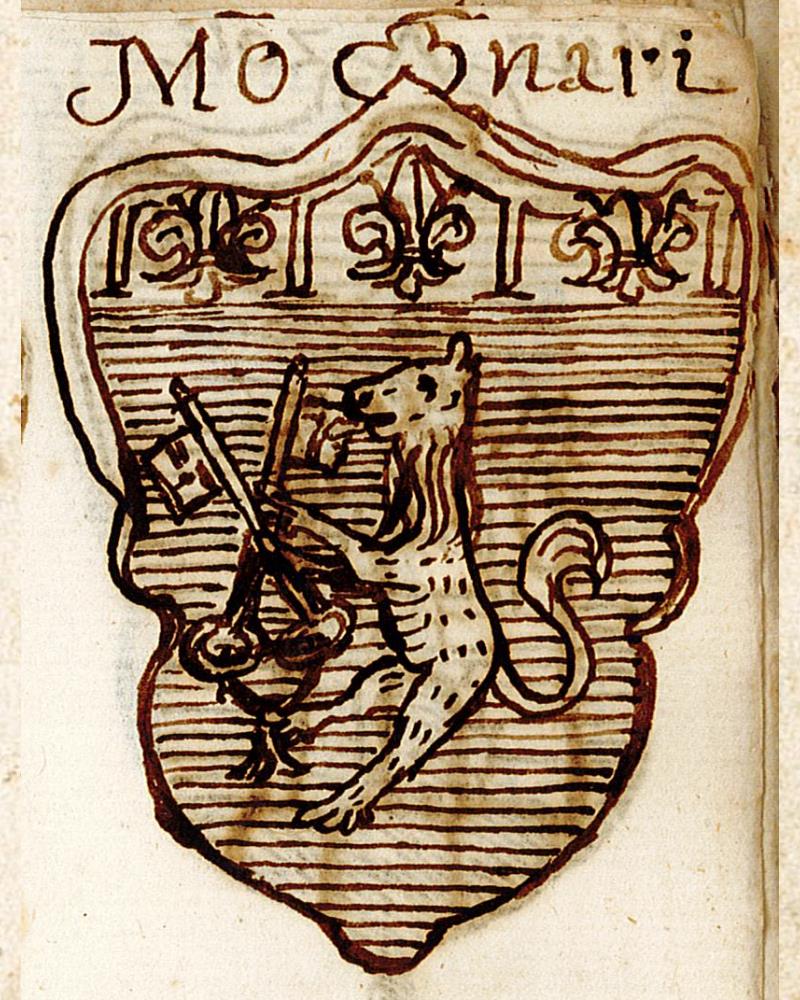 Mo nari